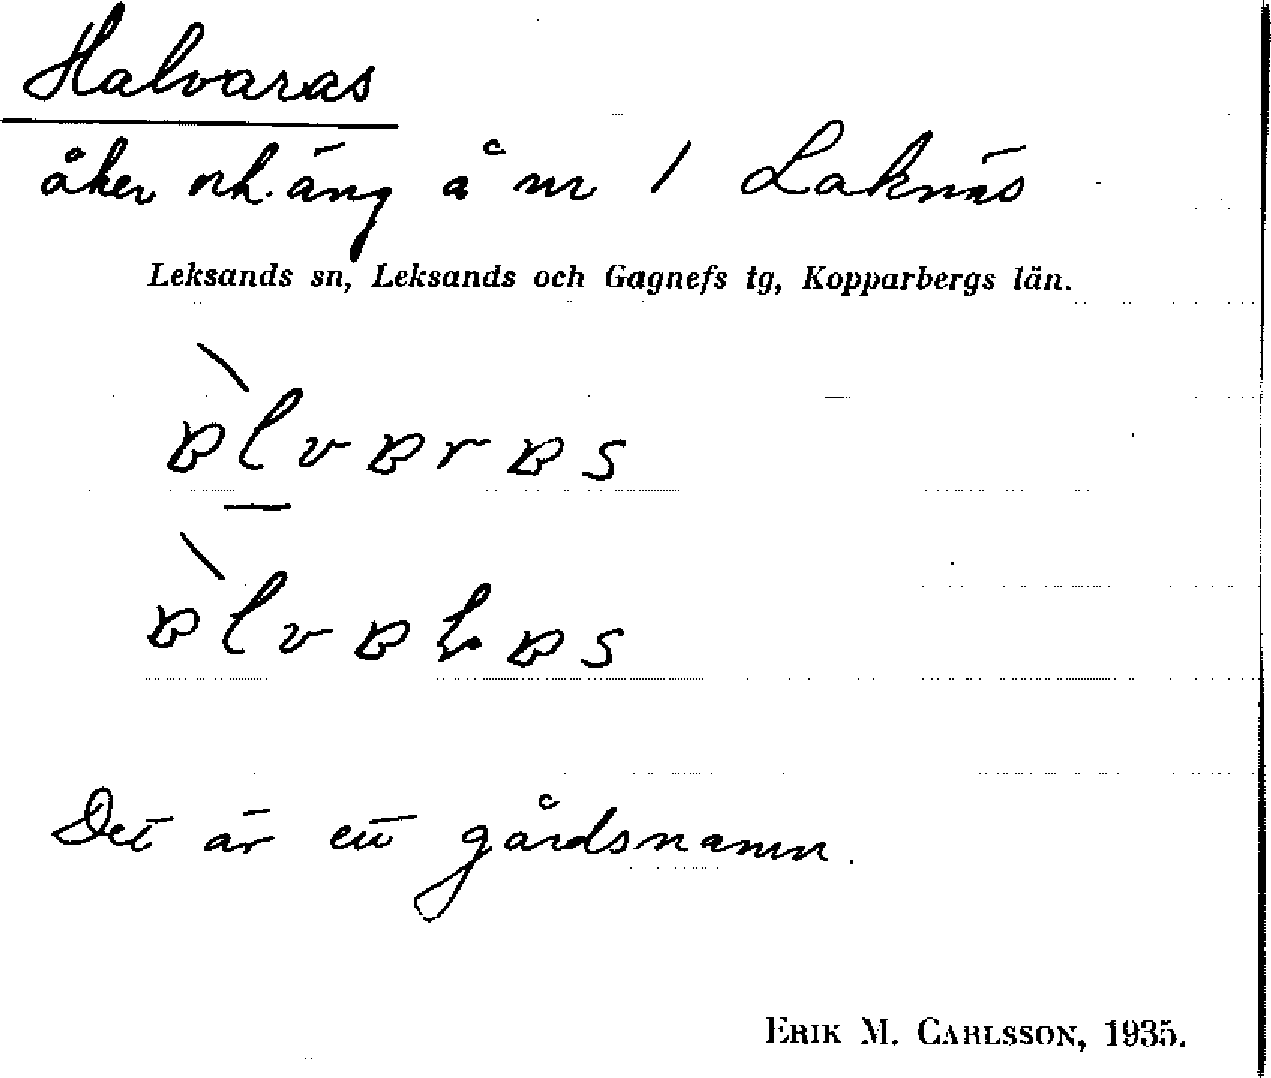 Halvaras
åker och äng å nr 1 Laknäs
Leksands sn, Leksands och Gagnefs tg, Kopparbergs län.
Det är ett gårdsnamn.
ERIK M. CARLSSON, 1935.